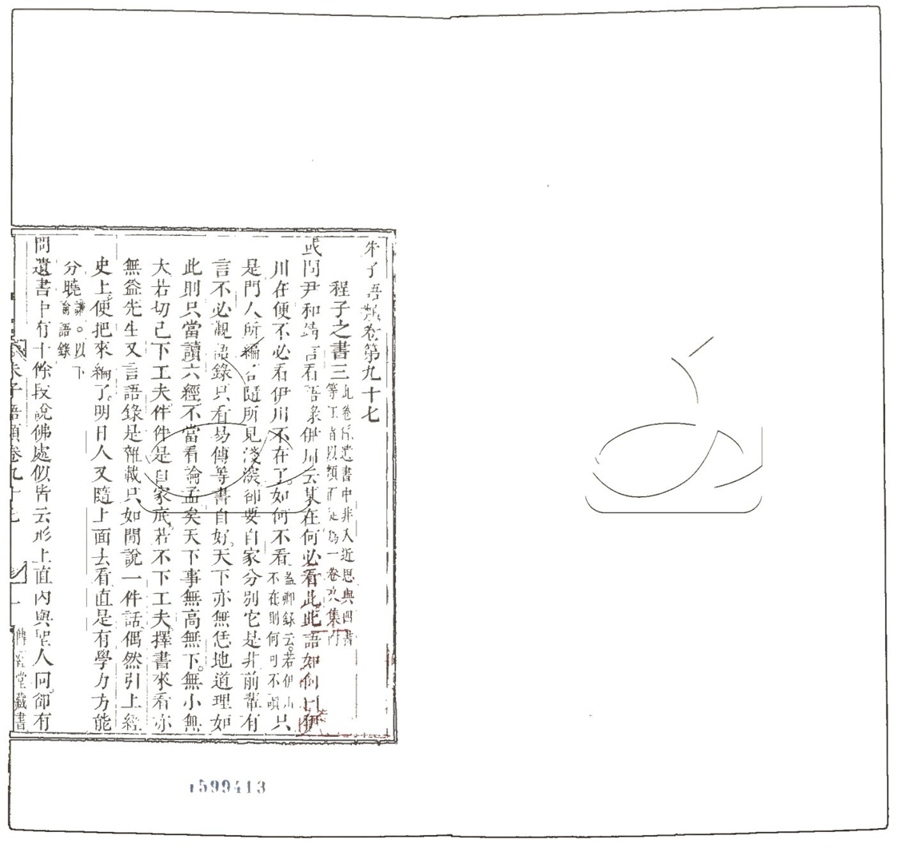 朱子語類卷第九十七
程子之書三此卷係遺書中非入近思與四書
等注者以類而從爲一卷文集附
或問尹和靖言看語錄伊川云某在何必看此此語如何曰伊
川在便不必看伊川不在了。如何不看蓋卿錄云。若伊川
不在則何可不讀只
是門人所編各隨所見淺深卻要自家分別它是非前輩有
言不必觀語錄只看易傳等書自好天下亦無恁地道理如
此則只當讀六經不當看論孟矣天下事無高無下。無小無
大若切己下工夫件件是自家底若不下工夫擇書來看亦
無益先生又言語錄是雜載只如閒說一件話偶然引上經
史上便把來編了明日人又隨上面去看直是有學力方能
分曉謙。以下
論語錄
問遺書中有十餘段說佛處似皆云形上直內與聖人同卻有
朱子語類卷九十七
一
傳經堂藏書
1599413